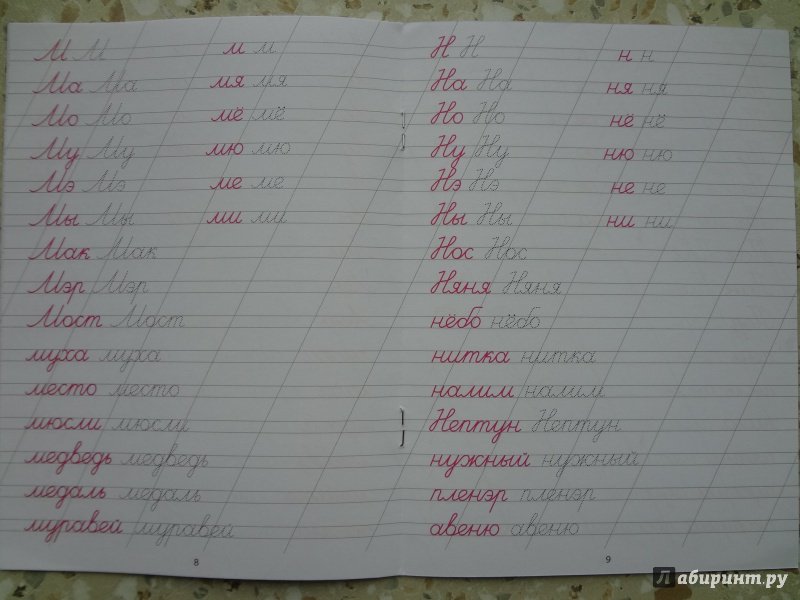 М М м м
Ма Ма мя мя
Мо Мо мё мё
Му Му мю мю
Мэ Мэ ме ме
Мы Мы ми ми
Мак Мак
Мэр Мэр
Мост Мост
муха муха
место место
мюсли мюсли
медведь медведь
медаль медаль
муравей муравей
8
Н Н н н
На На ня ня
Но Но нё нё
Ну Ну ню ню
Нэ Нэ не не
Ны Ны ни ни
Нос Нос
Няня Няня
нёбо нёбо
нитка нитка
налим налим
Нептун Нептун
нужный нужный
пленэр пленэр
авеню авеню
9
Лабиринт.ру